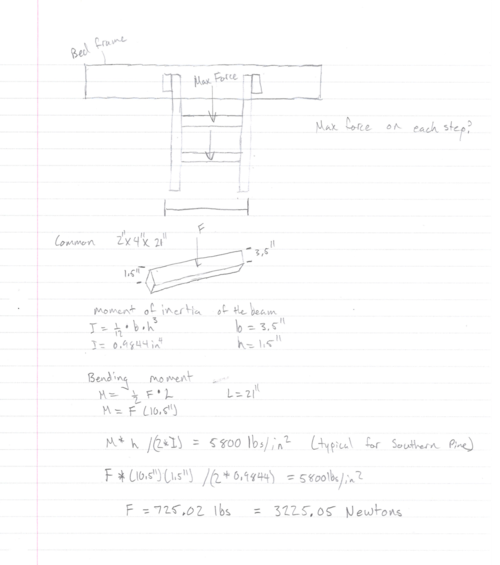 Bed frame
Max Force
Max force on each step?
Common 2"x4"x 21"
F
3.5"
1.5"
moment of inertia of the beam
I = 1/12 • b • h³ b = 3.5"
I = 0.9844 in⁴ h = 1.5"
Bending moment
M = ½ F • L L = 21"
M = F (10.5")
M * h /(2*I) = 5800 lbs/in² (typical for Southern Pine)
F * (10.5")(1.5") /(2 * 0.9844) = 5800lbs/in²
F = 725.02 lbs = 3225.05 Newtons